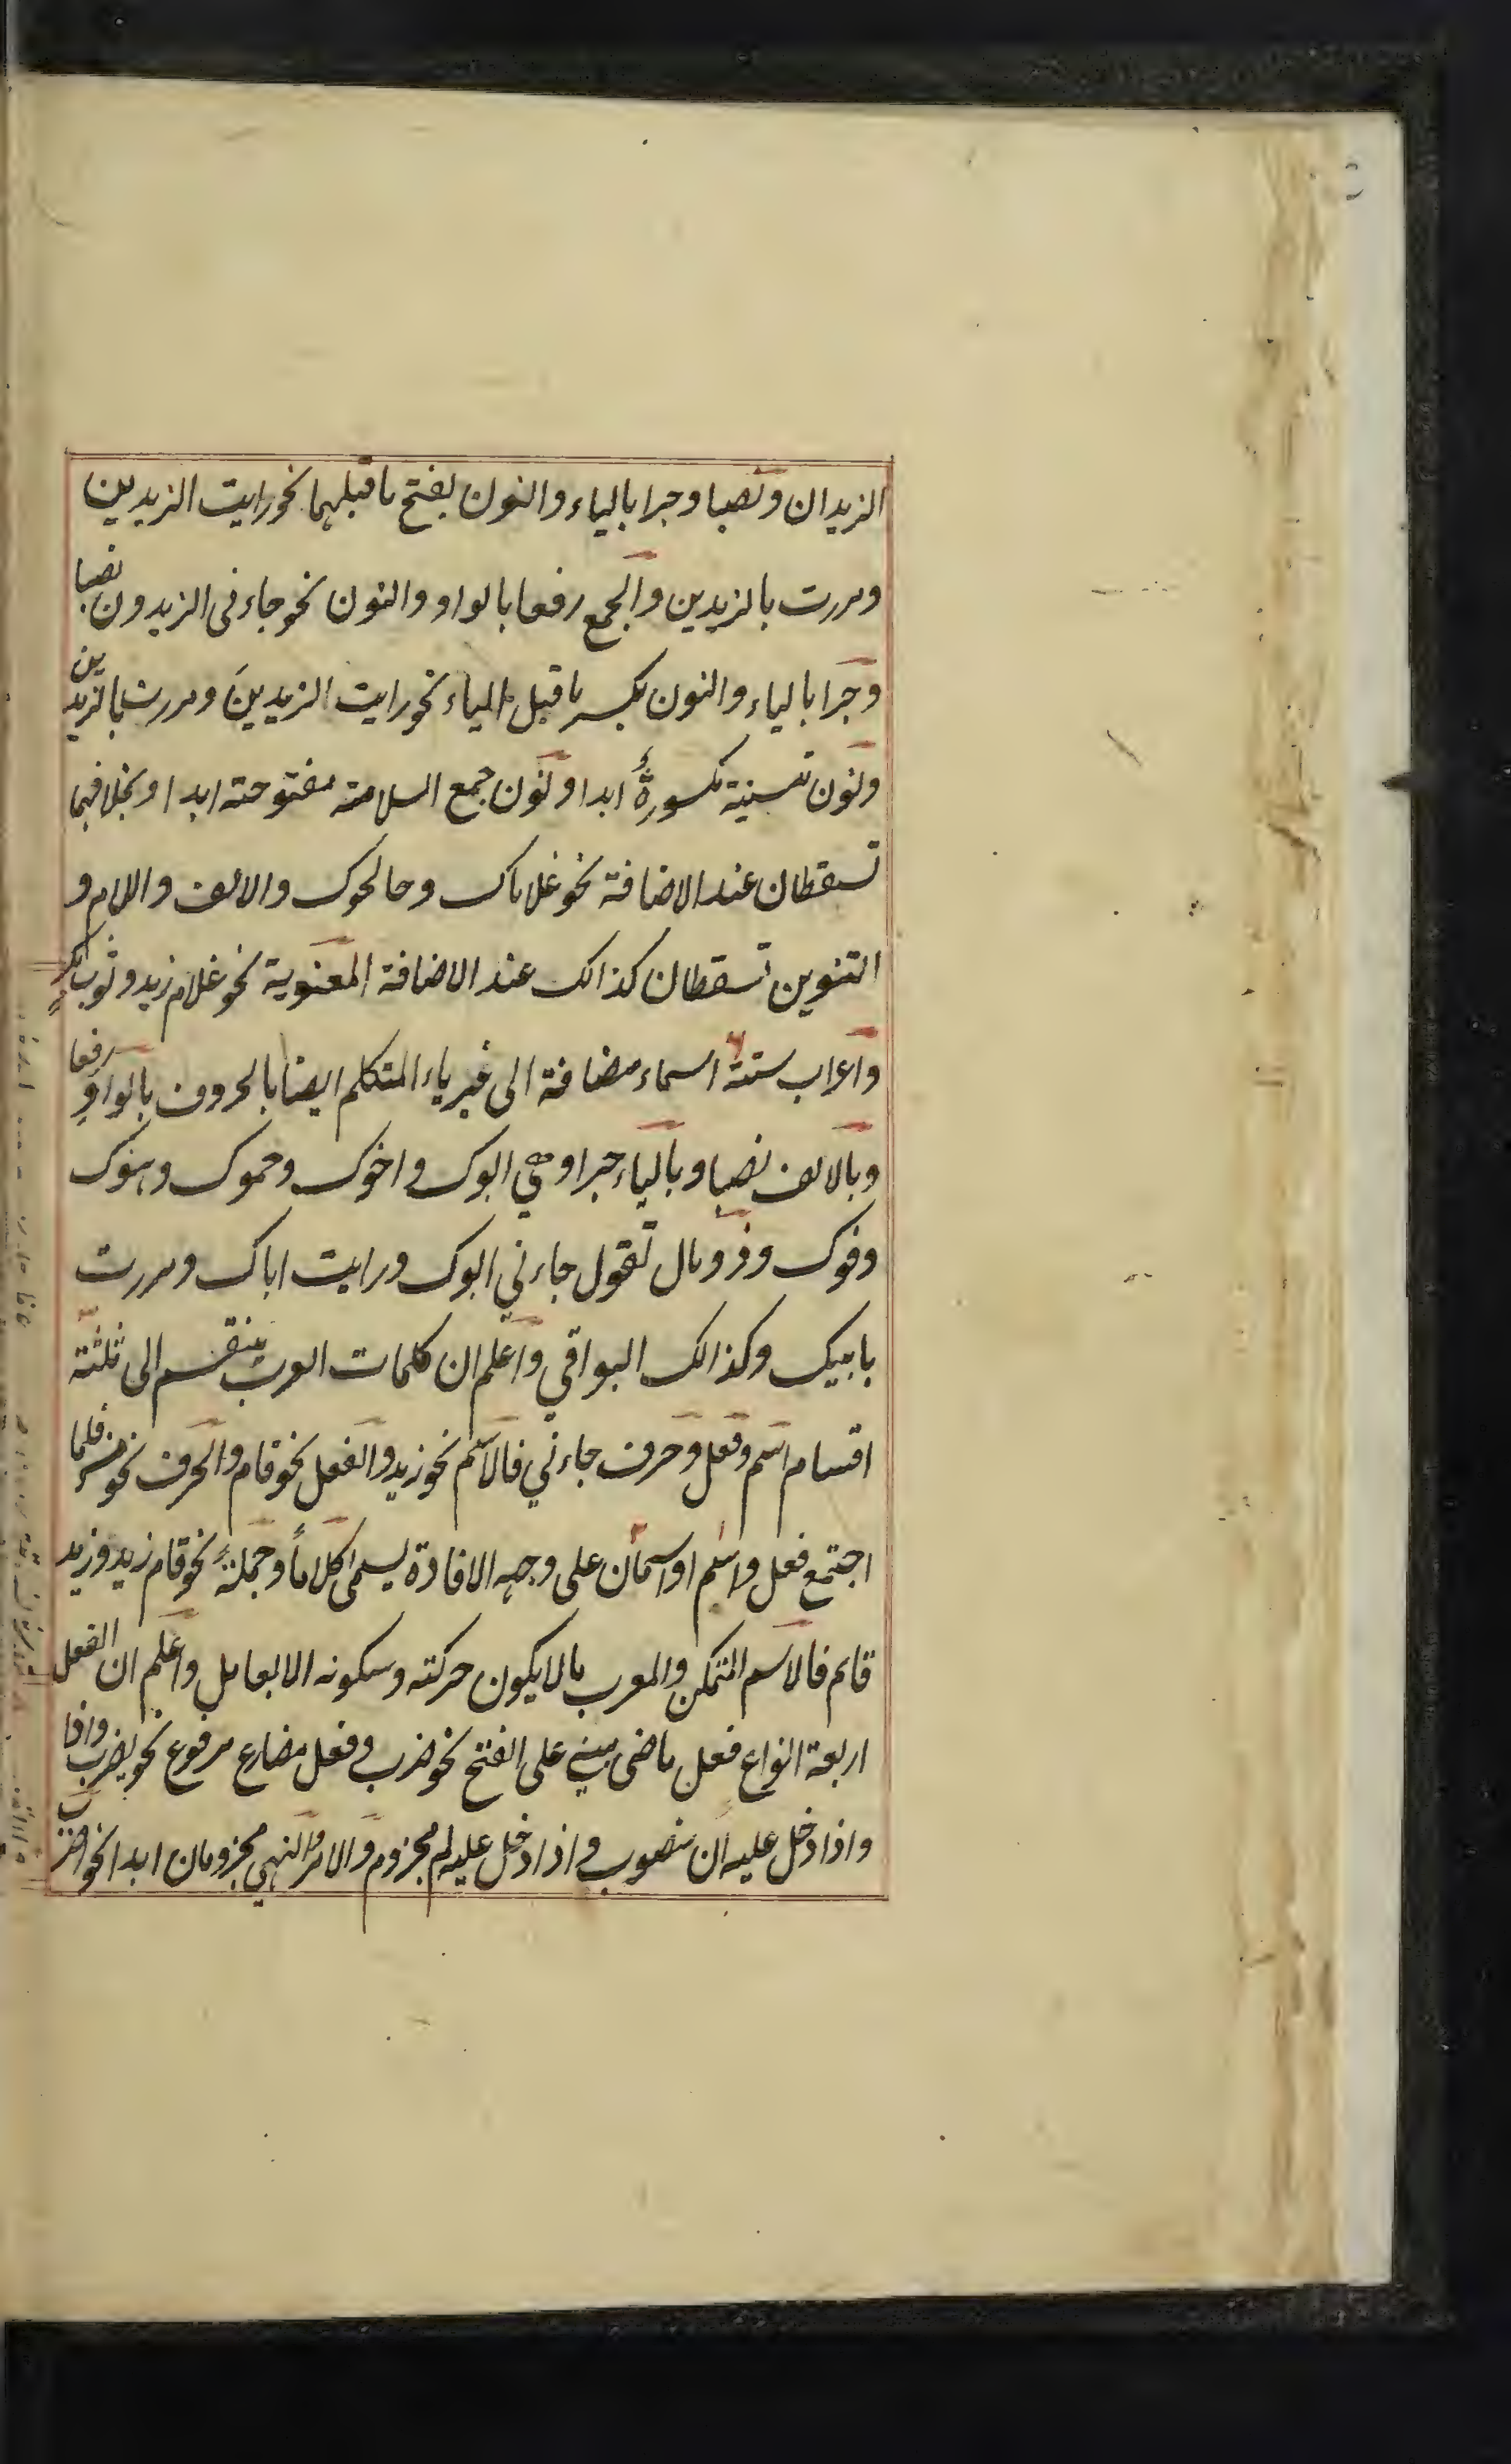 الزيدان ونصبا وجرا بالياء والنون بفتح ماقبلهما نحو رايت الزيدين
ومررت بالزيدين والجمع رفعا بالواو والنون نحو جاءنى الزيدون نصبا
وجرا بالياء والنون بكسر ماقبل الياء نحو رايت الزيدينَ ومررت بالزيدين
ونون تسنية مكسورةٌ ابدا ونون جمع السلامته مفتوحته ابدا وبخلافهما
تسقطان عند الاضافة نحو غلاماك وحالحوك والالف واللام و
التنوين تسقطان كذالك عند الاضافة المعنوية نحو غلام زيد وثوب بكرٍ
واعراب ستة اسماء مضافة الى غير ياء المتكلم ايضا بالحروف بالواوِ رفعا
وبالالف نصبا وبالياء جرا وهي ابوك واخوك وحموك وهنوك
وفوك وذو مال تقول جاءني ابوك ورايت اباك ومررت
بابيك وكذالك البواقي واعلم ان كلمات العرب ينقسم الى ثلثة
اقسام اسم وفعل وحرف جاءني فالاسم نحو زيد والفعل نحو قام والحرف نحو من فلما
اجتمع فعل واسم او اسمان على وجه الافادة يسمى كلاماً وجملةً نحو قام زيد وزيد
قايم فالاسم المتمكن والمعرب مالا يكون حركته وسكونه الا بعامل واعلم ان الفعل
اربعة انواع فعل ماضى مبني على الفتح نحو ضرب وفعل مضارع مرفوع نحو يضرب واذا
واذا دخل عليه ان منصوب واذا دخل عليه لم مجزوم والامر والنهي مجزومان ابدا نحو اضرب